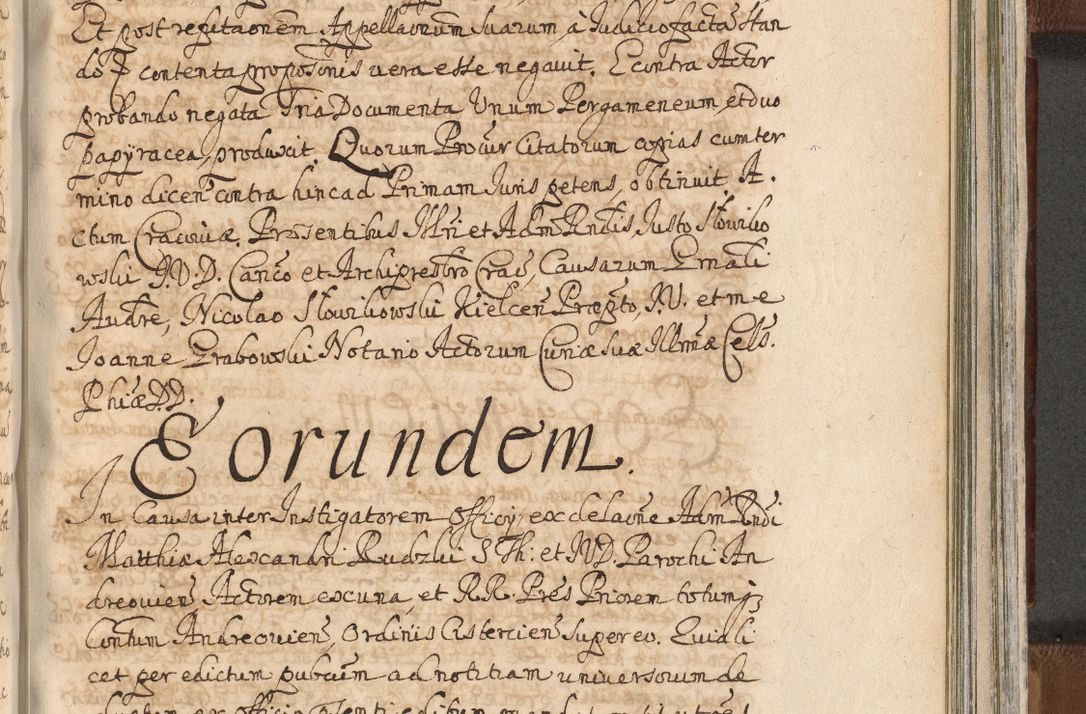 Et post regitaonem Appellaonum suarum, à Judicio factâ Stan
do p contenta proposõnis vera esse negavit. E contra Actor
probando negata Tria Documenta Unum Pergameneum, et duo
papÿracea, produxit. Quorum Procur Citatorum copias cum ter
mino dicen contra hinc ad Primam Juris petens, obtinuit. A.
ctum Cracoviæ. Præsentibus Illri et Adm Rndis, Justo Słowiko
wski J.V.D. Canco et Archipresbro Crac, Causarum Gnali
Audre, Nicolao Słowikowski Kielcen Præpto, J.V. et me
Joanne Grabowski Notario Actorum Curiæ Suæ Illmæ Cels.
Phiæ D.D.
Eorundem.
In Causa inter Instigatorem Officÿ, ex delaone Adm Rndi
Matthiæ Alexandri Rudzki S. Th: et JVD. Parochi An
dreovien, Actorem ex una, et R.R. Pres Priorem totumqz
Contum Andreovien, Ordinis Cistercien Super eo. Quia li
cet per edictum pubcum ad notitiam universorum de